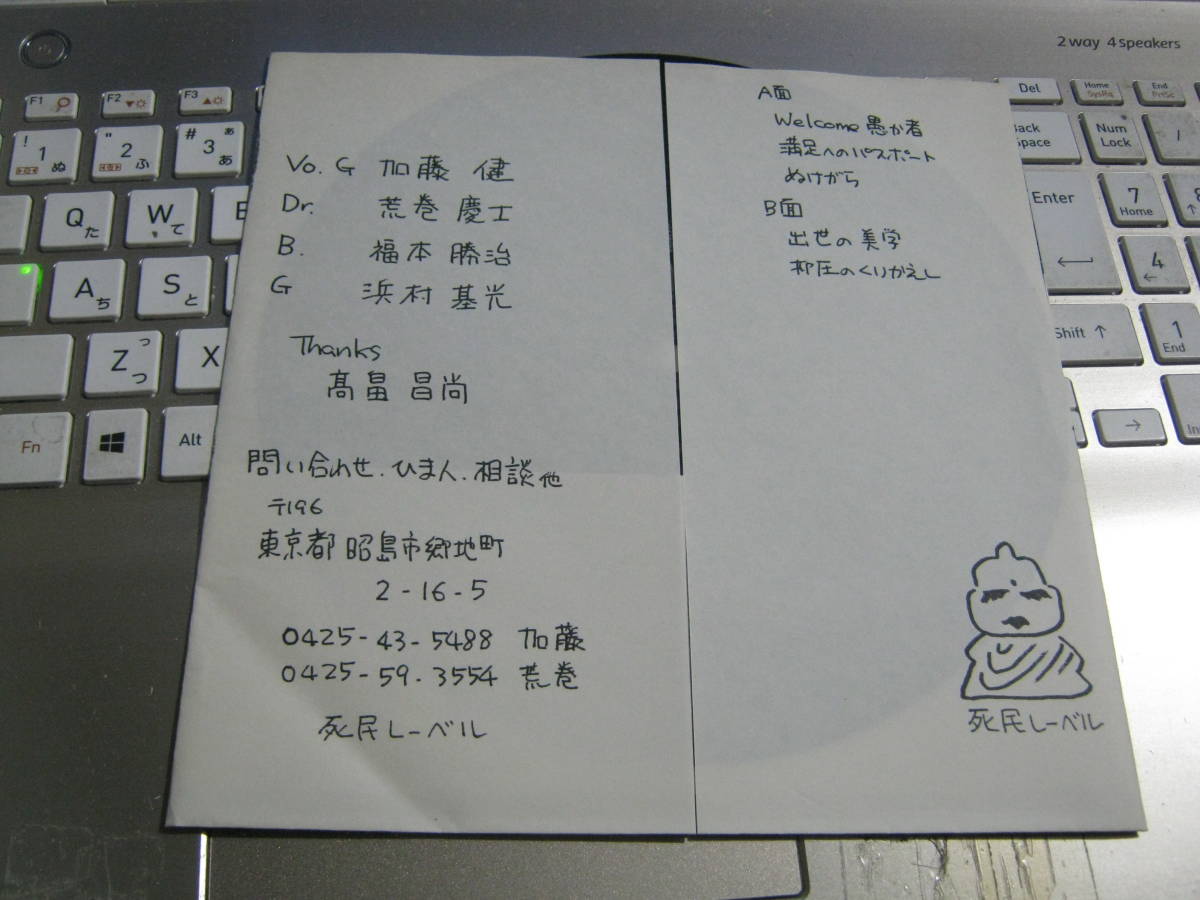 2 way 4 speakers
Vo. G 加藤 健
Dr. 荒巻 慶士
B. 福本 勝治
G 浜村 基光
Thanks
高畠 昌尚
問い合わせ.ひまん.相談他
〒196
東京都 昭島市郷地町
2-16-5
0425-43-5488 加藤
0425-59-3554 荒巻
死民レーベル
A面
Welcome 愚か者
満足へのパスポート
ぬけがら
B面
出世の美学
抑圧のくりかえし
死民レーベル
F1
F2
F3
! 1 ぬ
" 2 ふ
# 3 ぁ あ
Q た
W て
E
A ち
S と
Z っ つ
X
Fn
Alt
Del
Home SysRq
End PrtSc
Back Space
Num Lock
/
Enter
7 Home
8
4
Shift
1 End